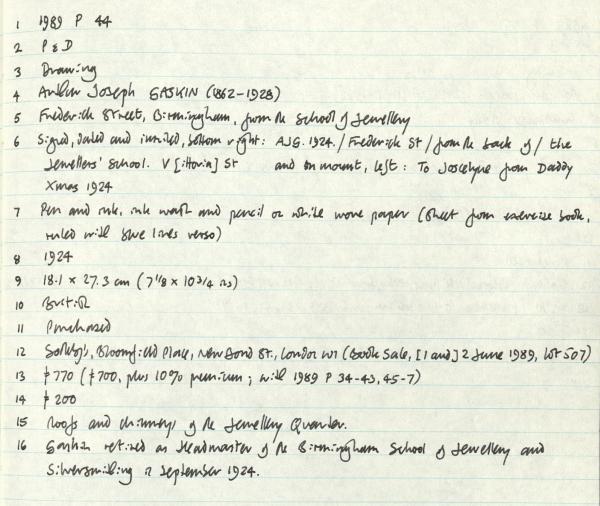 1 1989 P 44
2 P & D
3 Drawing
4 Arthur Joseph GASKIN (1862-1928)
5 Frederick Street, Birmingham, from the School of Jewellery
6 Signed, dated and inscribed, bottom right: AJG. 1924. / Frederick St / from the back of / the
Jewellers' School. V [ittoria] St and on mount, left: To Joscelyne from Daddy
Xmas 1924
7 Pen and ink, ink wash and pencil on white wove paper (sheet from exercise book,
ruled with blue lines verso)
8 1924
9 18.1 x 27.3 cm (7 1/8 x 10 3/4 ins)
10 British
11 Purchased
12 Sotheby's, Bloomfield Place, New Bond St., London W1 (Book Sale, [1 and] 2 June 1989, lot 507)
13 £770 (£700, plus 10% premium; with 1989 P 34-43, 45-7)
14 £200
15 Roofs and chimneys of the Jewellery Quarter.
16 Gaskin retired as Headmaster of the Birmingham School of Jewellery and
Silversmithing in September 1924.